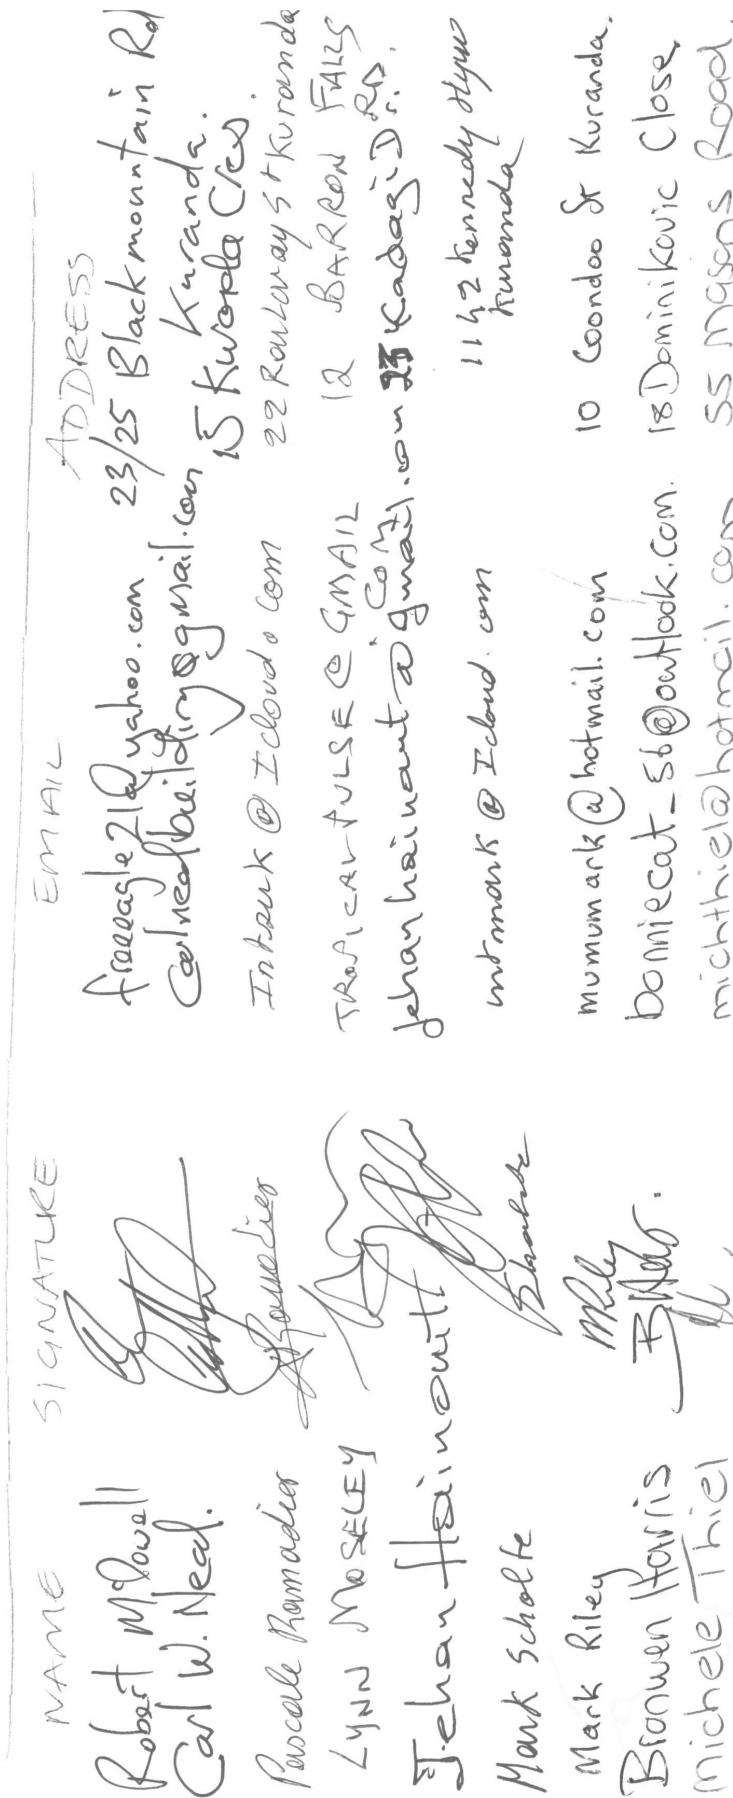 NAME SIGNATURE EMAIL ADDRESS
Robert McDowell freeeagle21@yahoo.com 23/25 Blackmountain Rd
Kuranda.
Carl W. Neal. carlnealbuilding@gmail.com 15 Kworla Cres
Pascale Ramadier Ramadier @Icloud.com 22 Rankway St Kuranda
LYNN MOSELEY TROPICAL PULSE@GMAIL 12 BARRON FALLS
COM RD.
Jehan Hainaut jehanhainaut@gmail.com 23 Kadagi Dr.
Mark Scholte mtmark@Icloud.com Kennedy Hyw
Kuranda
Mark Riley MRiley mumumark@hotmail.com 10 Coondoo St Kuranda.
Bronwen Harris bonniecat_56@outlook.com. 18 Dominikovic Close,
Michele Thiel michthiel@hotmail.com 55 Masons Road.